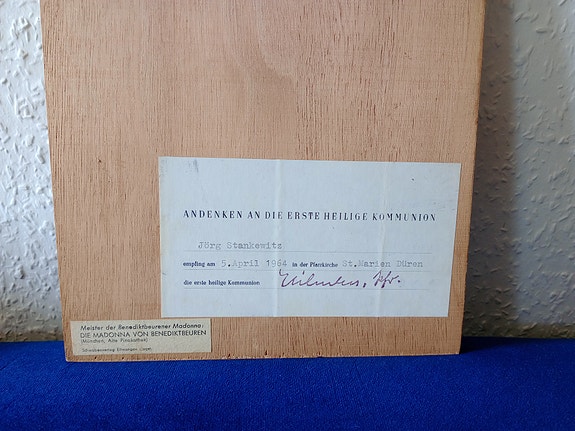 ANDENKEN AN DIE ERSTE HEILIGE KOMMUNION
Jörg Stankewitz
empfing am 5.April 1964 in der Pfarrkirche St.Marien Düren
die erste heilige Kommunion Pfr.
Meister der Benediktbeurener Madonna:
DIE MADONNA VON BENEDIKTBEUREN
(München, Alte Pinakothek)